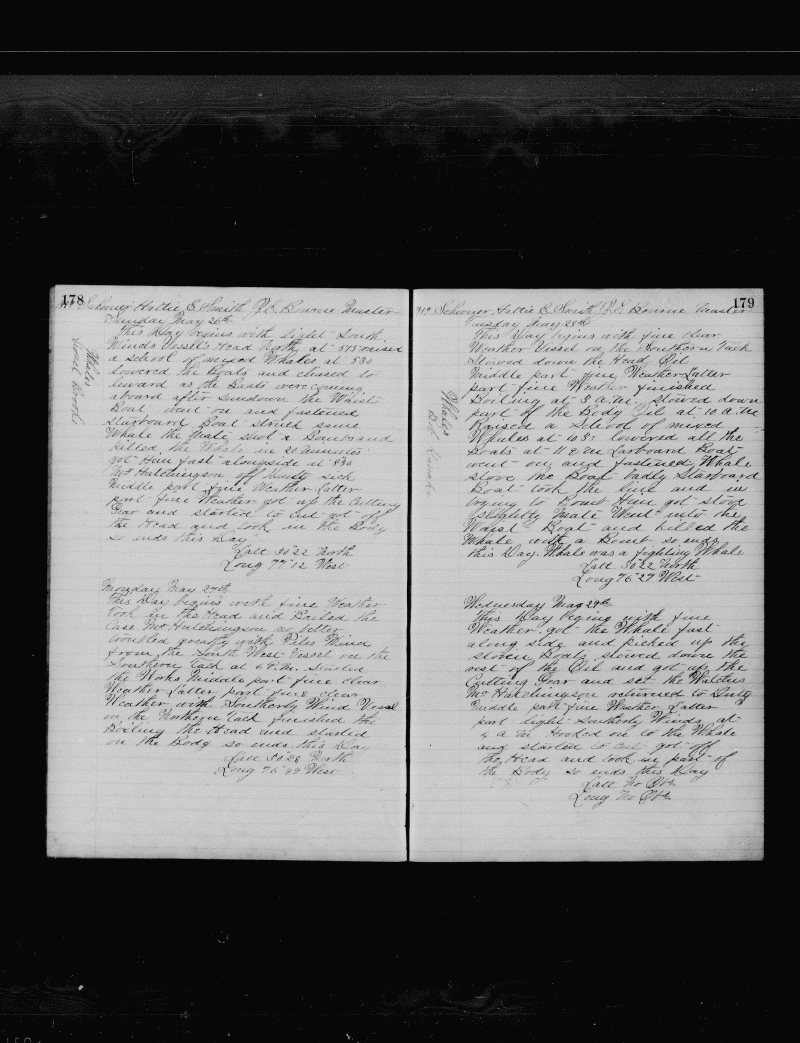 178
Schooner Hattie E Smith J. E. Bourne Master
Sunday May 26th
This Day begins with light South
Winds Vessel's Head North at 5 raised
a School of mixed Whales at 530
lowered the Boats and chased to
leward as the Buls were coming
aboard after Sundown the Waist
Boat went on and fastened
Starboard Boat Struck same
Whale the Mate Shot a Bomb and
killed the Whale in 20 minutes
got Him fast alongside at 830
Mr Hutchingson off Duty Sick
Middle part fine Weather Latter
part fine Weather got up the Cutting
Gear and started to Cut got off
the Head and took in the Body
so ends this Day
Latt 30"22 North
Long 77"12 West
Monday May 27th
This Day begins with fine Weather
took in the Head and Boiled the
Case Mr Hutchingson no better
troubled greatly with Piles Wind
from the South West Vessel on the
Southern Tack at 6 P.M. Started
the Works Middle part fine clear
Weather Latter part fine clear
Weather with Southerly Wind Vessel
on the Northern Tack finished the
Boiling the Head and started
on the Body so ends this Day
Latt 30"28 North
Long 76"49 West
179
Schooner Hattie E Smith J. E. Bourne Master
Tuesday May 28th
This Day begins with fine clear
Weather Vessel on the Southern Tack
Stowed down the Head Oil
Middle part fine Weather Latter
part fine Weather finished
Boiling at 3 a.m. Stowed down
part of the Body Oil at 10 a.m
Raised a School of mixed
Whales at 10 lowered all the
Boats at 11 a m Larboard Boat
went on and fastened, Whale
stove the Boat badly Starboard
Boat took the line and in
trying to Bomb Him got stove
slightly Mate Went into the
Waist Boat and killed the
Whale with a Bomb so ends
this Day. Whale was a fighting Whale
Latt 30"22 North
Long 76"27 West
Wednesday May 29th
This Day begins with fine
Weather, got the Whale fast
along side and Picked up the
stoven Boats stowed down the
rest of the Oil and got up the
Cutting Gear and set the Watches
Mr Hutchingson returned to Duty
Middle part fine Weather Latter
part light Southerly Winds at
4 a m Hooked on to the Whale
and started to Cut got off
the Head and took in part of
the Body so ends this Day
Latt No Obs
Long No Obs
Whales
Whales